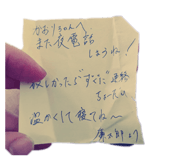 かおりさんへ
また夜電話
しようね！
寂しかったらすぐに連絡
ちょーだい
温かくして寝てね〜
より